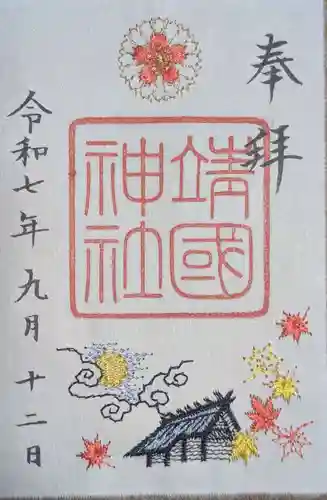 奉拝
靖國
神社
令和七年九月十二日